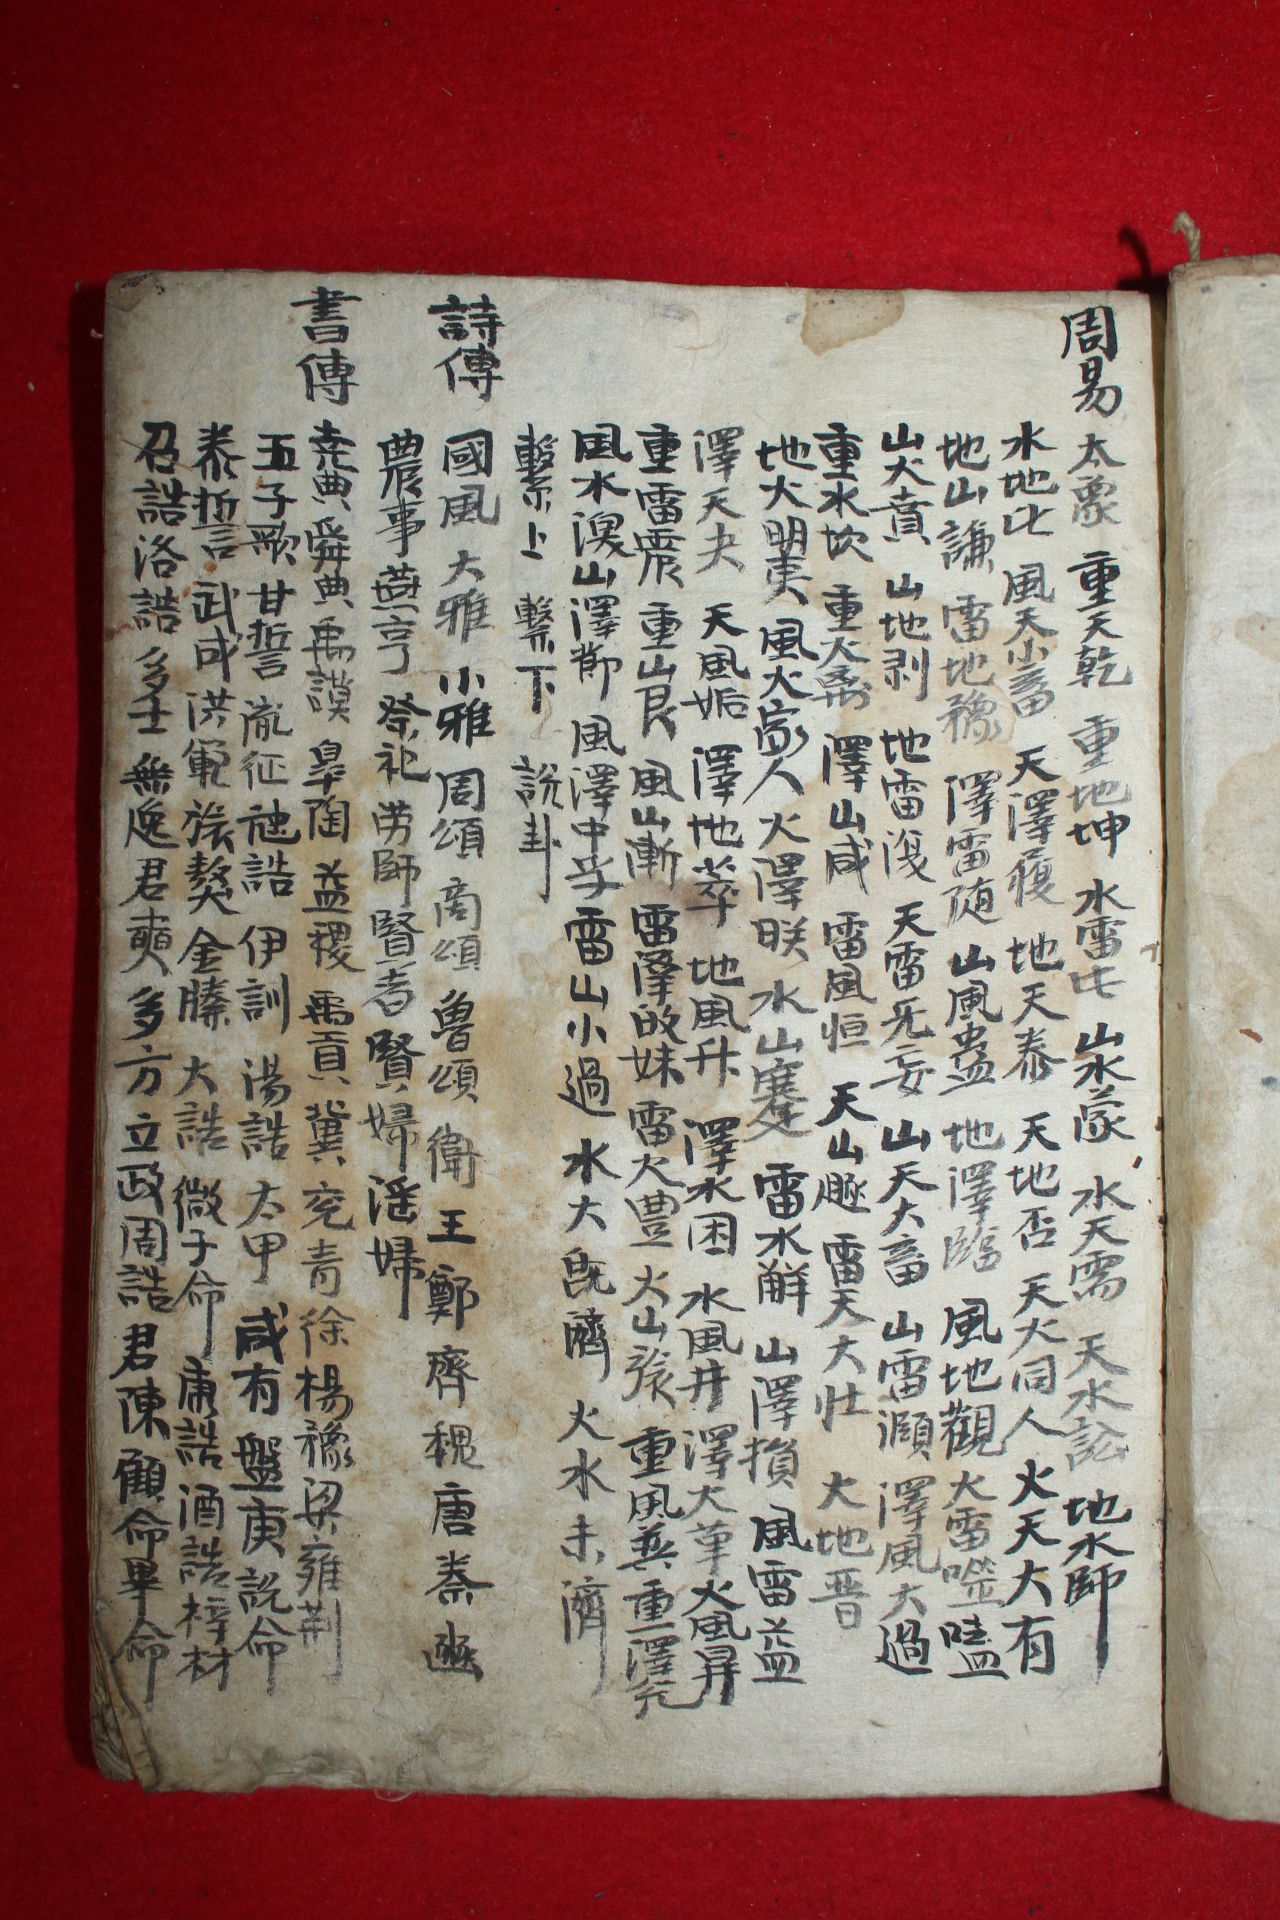 周易 太象 重天乾 重地坤 水雷屯 山水蒙 水天需 天水訟 地水師
水地比 風天小畜 天澤履 地天泰 天地否 天火同人 火天大有
地山謙 雷地豫 澤雷随 山風蠱 地澤臨 風地觀 火雷噬嗑
山火賁 山地剥 地雷復 天雷无妄 山天大畜 山雷頥 澤風大過
重水坎 重火離 澤山咸 雷風恒 天山遯 雷天大壮 火地晋
地火明夷 風火家人 火澤睽 水山蹇 雷水解 山澤損 風雷益
澤天夬 天風姤 澤地萃 地風升 澤水困 水風井 澤火革 火風鼎
重雷震 重山艮 風山漸 雷澤故妹 雷火豊 火山旅 重風巽 重澤兌
風水渙 山澤節 風澤中孚 雷山小過 水火旣濟 火水未濟
繫上 繫下 說卦
詩傳 國風 大雅 小雅 周頌 商頌 魯頌 衛 王 鄭 齊 魏 唐 秦 豳
農事 燕亨 祭祀 劳師 賢者 賢婦 淫婦
書傳 堯典 舜典 禹謨 皐陶 益稷 禹貢 冀 兖 青 徐 楊 豫 梁 雍 荆
五子歌 甘誓 胤征 虺誥 伊訓 湯誥 太甲 咸有 盤庚 說命
泰誓 武成 洪範 旅獒 金縢 大誥 微子命 康誥 酒誥 梓材
召誥 洛誥 多士 無逸 君奭 多方 立政 周誥 君陳 顧命 畢命